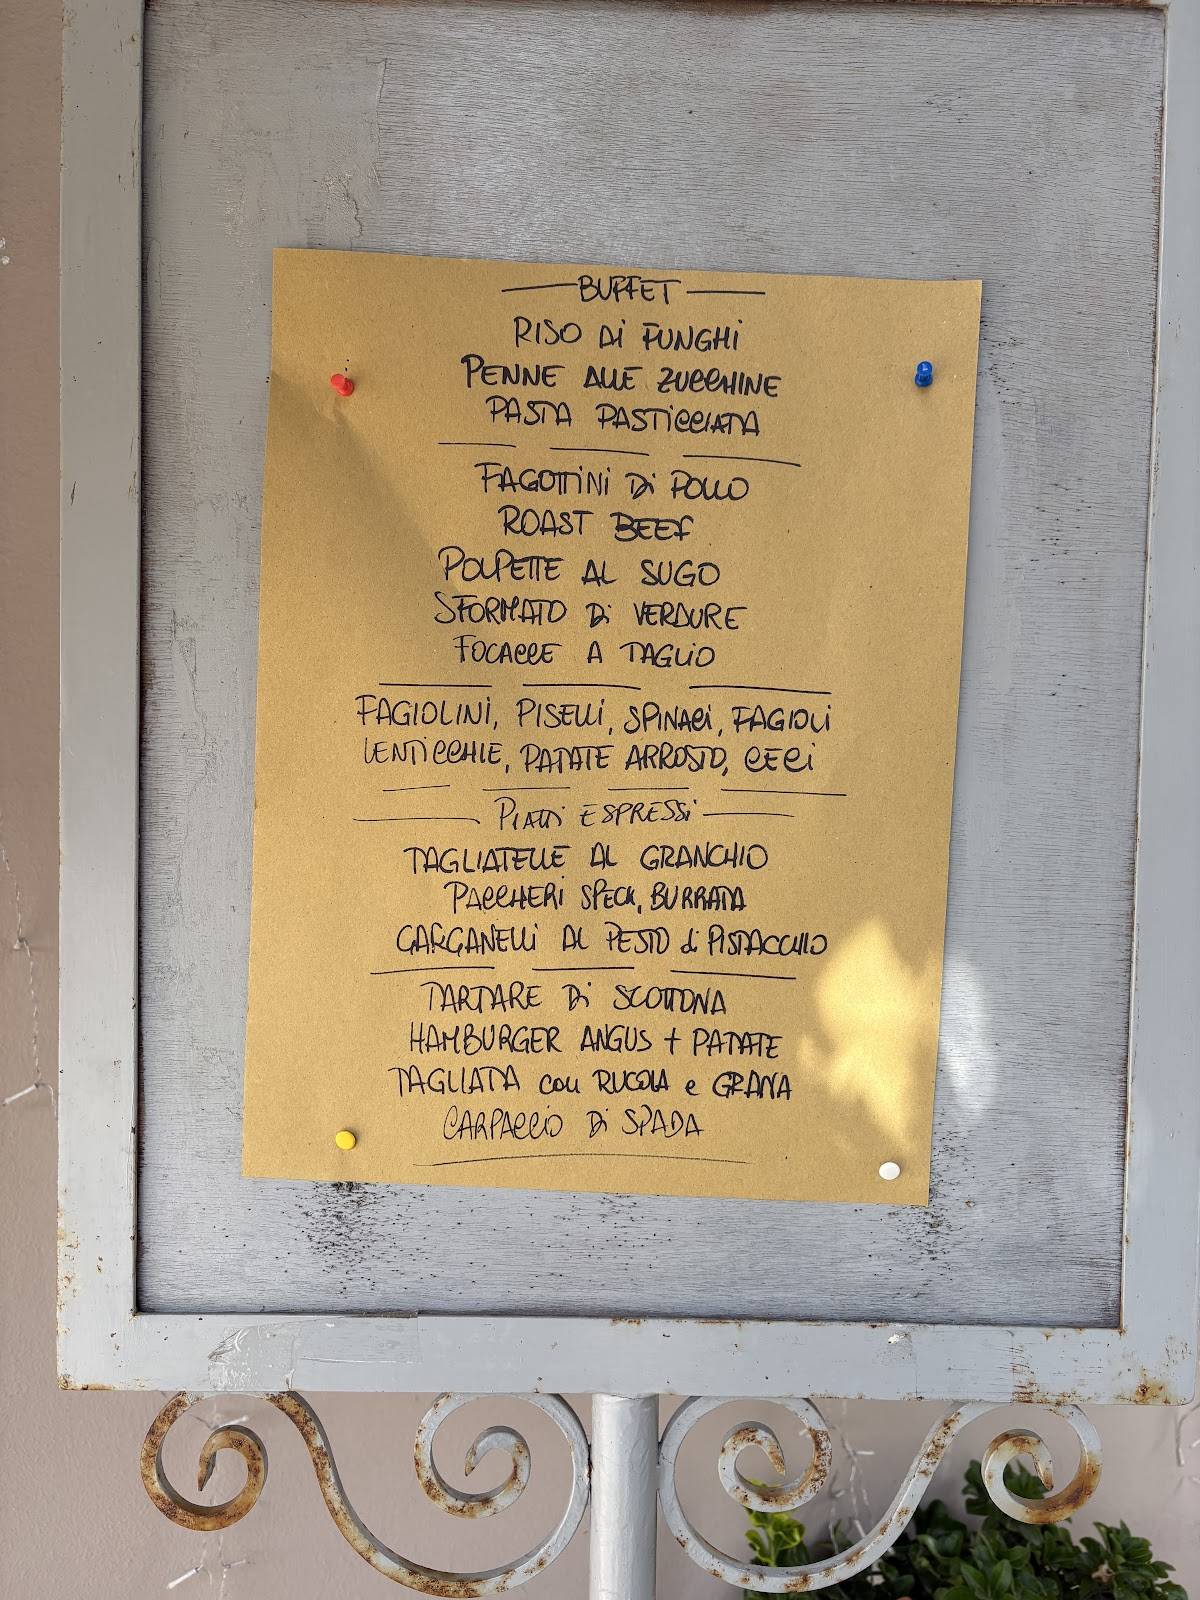 BUFFET
RISO Di FUNGHi
PENNE ALLE ZUCCHINE
PASTA PASTiCCiATA
FAGOTTiNi Di POLLO
ROAST BEEF
POLPETTE AL SUGO
SFORMATO Di VERDURE
FOCACCE A TAGLiO
FAGIOLiNi, PISELLi, SPINACi, FAGIOLi
LENTiCCHiE, PATATE ARROSTO, CECi
PiATTi ESPRESSi
TAGLIATELLE AL GRANCHIO
PACCHERi SPECK, BURRATA
GARGANELLi AL PESTO di PISTACCHIO
TARTARE Di SCOTTONA
HAMBURGER ANGUS + PATATE
TAGLIATA con RUCOLA e GRANA
CARPACCIO Di SPADA